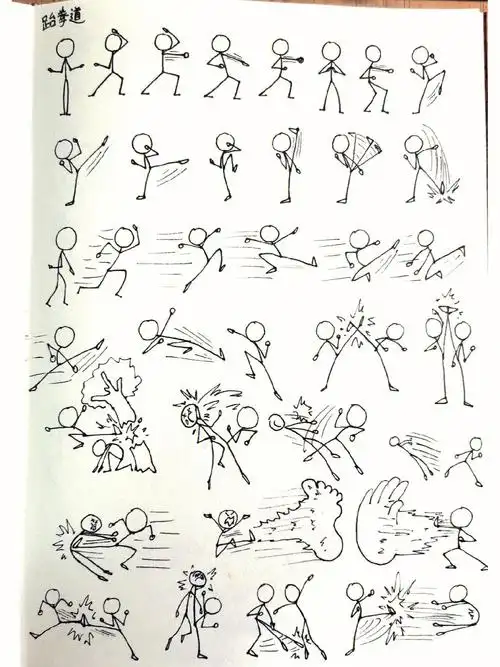 跆拳道